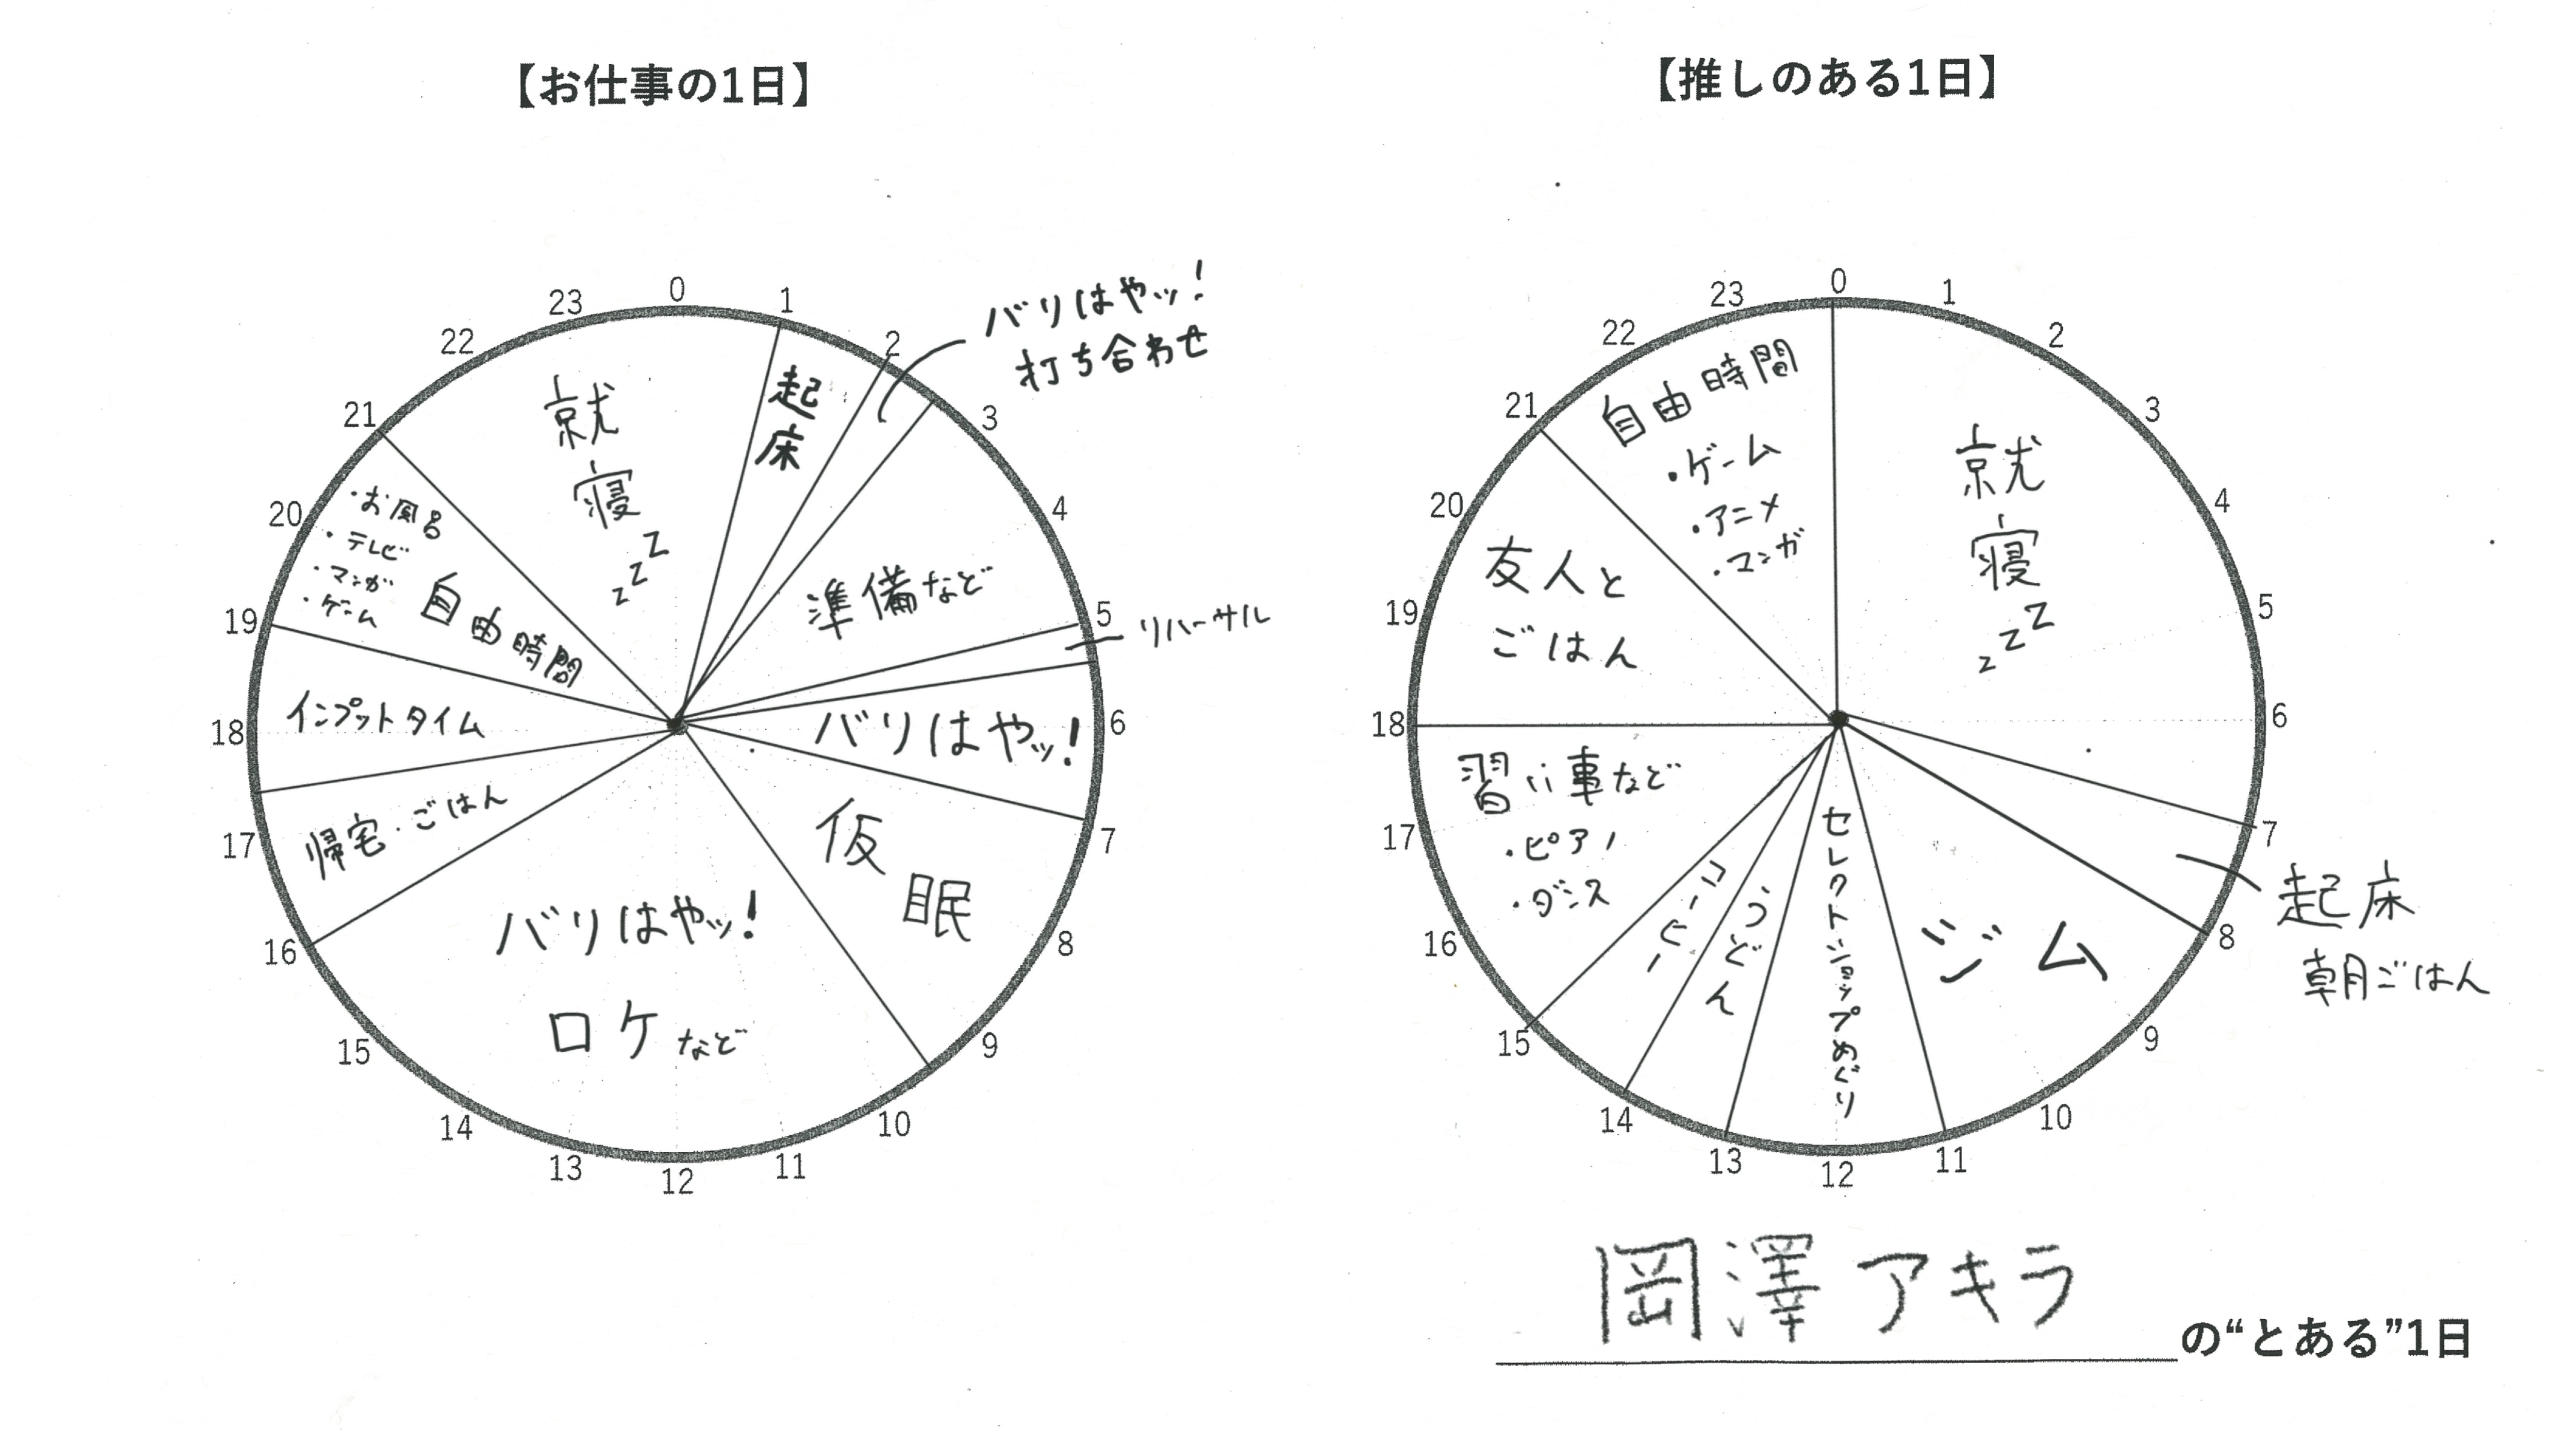 【お仕事の1日】
0
1
2
3
4
5
6
7
8
9
10
11
12
13
14
15
16
17
18
19
20
21
22
23
就寝
zzz
起床
バリはやッ!
打ち合わせ
準備など
リハーサル
バリはやッ!
仮眠
バリはやッ!
ロケなど
帰宅・ごはん
インプットタイム
自由時間
・お風呂
・テレビ
・マンガ
・ゲーム
【推しのある1日】
0
1
2
3
4
5
6
7
8
9
10
11
12
13
14
15
16
17
18
19
20
21
22
23
就寝
zzz
起床
朝ごはん
ジム
セレクトショップめぐり
うどん
コーヒー
習い事など
・ピアノ
・ダンス
友人と
ごはん
自由時間
・ゲーム
・アニメ
・マンガ
岡澤アキラの“とある”1日